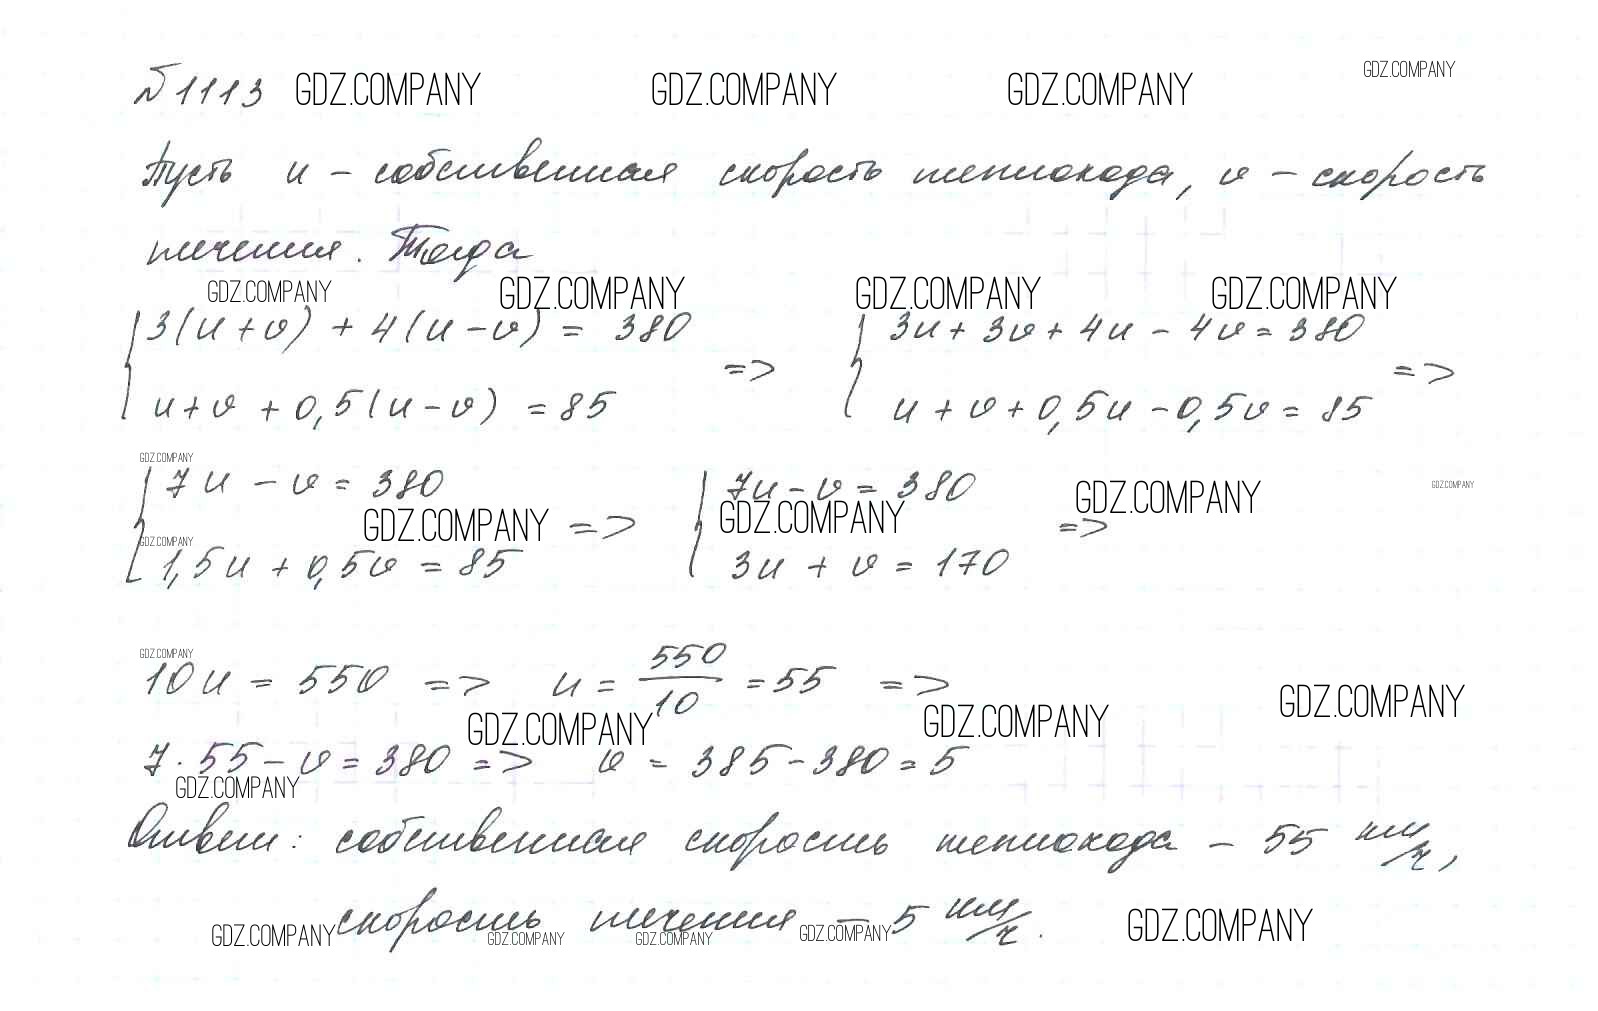 №1113 GDZ.COMPANY GDZ.COMPANY GDZ.COMPANY GDZ.COMPANY
Пусть u – собственная скорость теплохода, v – скорость
течения. Тогда
GDZ.COMPANY GDZ.COMPANY GDZ.COMPANY GDZ.COMPANY
{ 3(u+v) + 4(u-v) = 380 => { 3u + 3v + 4u - 4v = 380 =>
u+v + 0,5(u-v) = 85 u + v + 0,5u - 0,5v = 85
GDZ.COMPANY
{ 7u - v = 380 => { 7u - v = 380 =>
GDZ.COMPANY GDZ.COMPANY GDZ.COMPANY GDZ.COMPANY
GDZ.COMPANY
1,5u + 0,5v = 85 3u + v = 170
GDZ.COMPANY
10u = 550 => u = 550/10 = 55 =>
GDZ.COMPANY GDZ.COMPANY GDZ.COMPANY
7·55 - v = 380 => v = 385 - 380 = 5
GDZ.COMPANY
Ответ: собственная скорость теплохода – 55 км/ч,
скорость течения – 5 км/ч.
GDZ.COMPANY GDZ.COMPANY GDZ.COMPANY GDZ.COMPANY GDZ.COMPANY